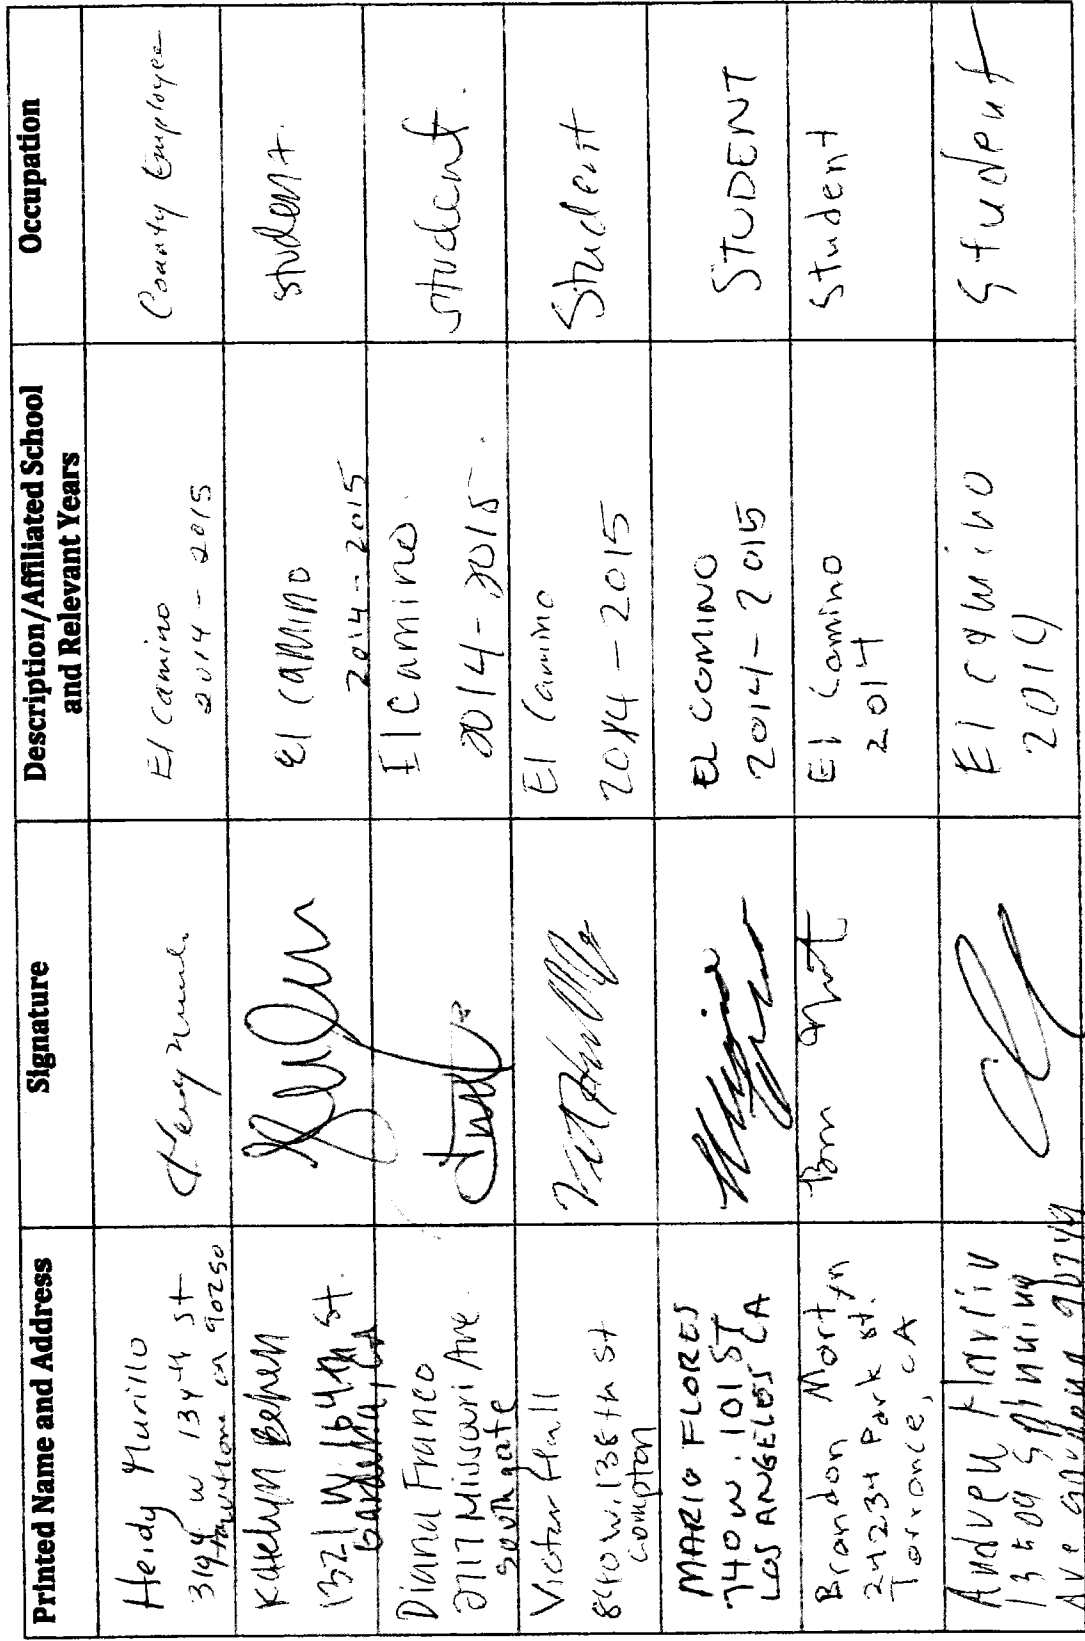 Printed Name and Address
Signature
Description/Affiliated School
and Relevant Years
Occupation
Heidy Murillo
3194 W 134th St
Hawthorne CA 90250
El Camino
2014 - 2015
County Employee
Katelyn
1321 W 164th St.
Gardena, CA
El Camino
2014-2015
student.
Diana Franco
2717 Missouri Ave.
South gate
El Camino.
2014-2015.
student.
Victor Hall
840 W. 138th st
Compton
El Camino
2014-2015
Student
MARIO FLORES
740 W. 101 ST
LOS ANGELES CA
EL COMINO
2014-2015
STUDENT
Brandon Mortyn
24234 Park St.
Torrance, CA
El Camino
2014
Student
Andrew
Ave gardena
El camino
2014
Student